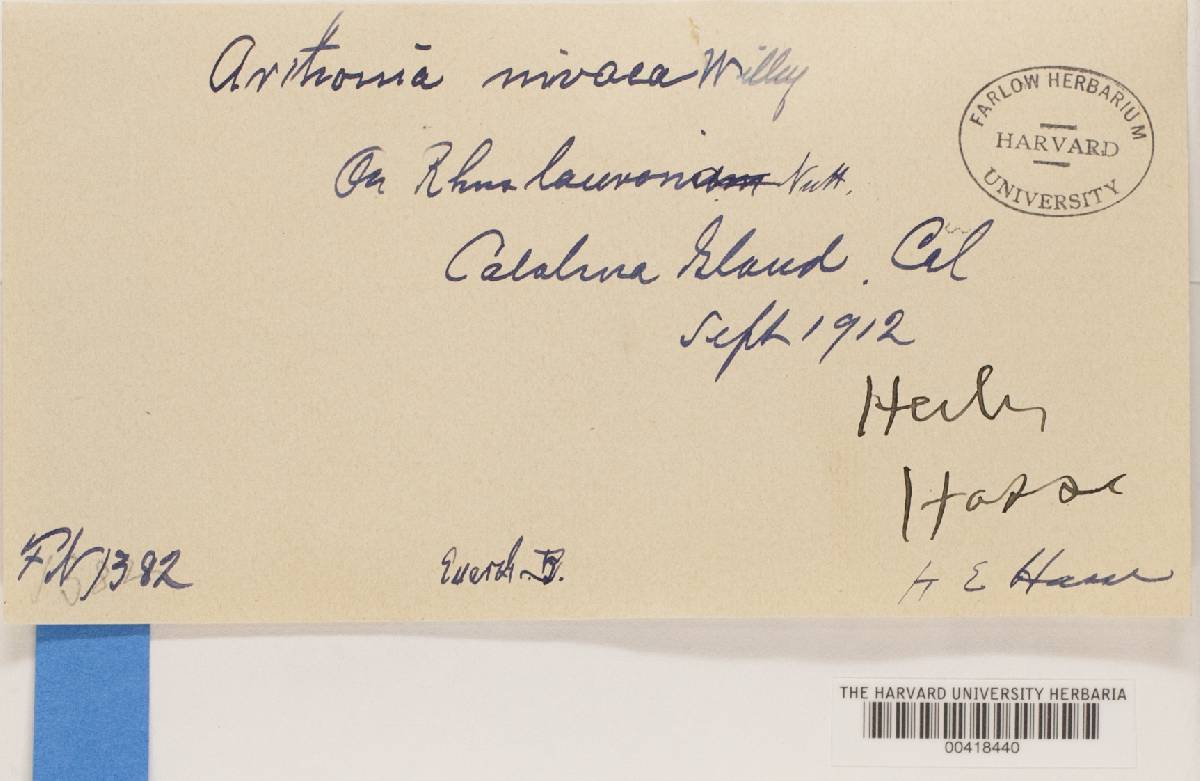 Arthonia nivaea Willey
FARLOW HERBARIUM
HARVARD
UNIVERSITY
On Rhus laurona Nutt.
Catalina Island, Cal
Sept 1912
Herb
Hasse
FN 1382
H E Hasse
THE HARVARD UNIVERSITY HERBARIA
00418440